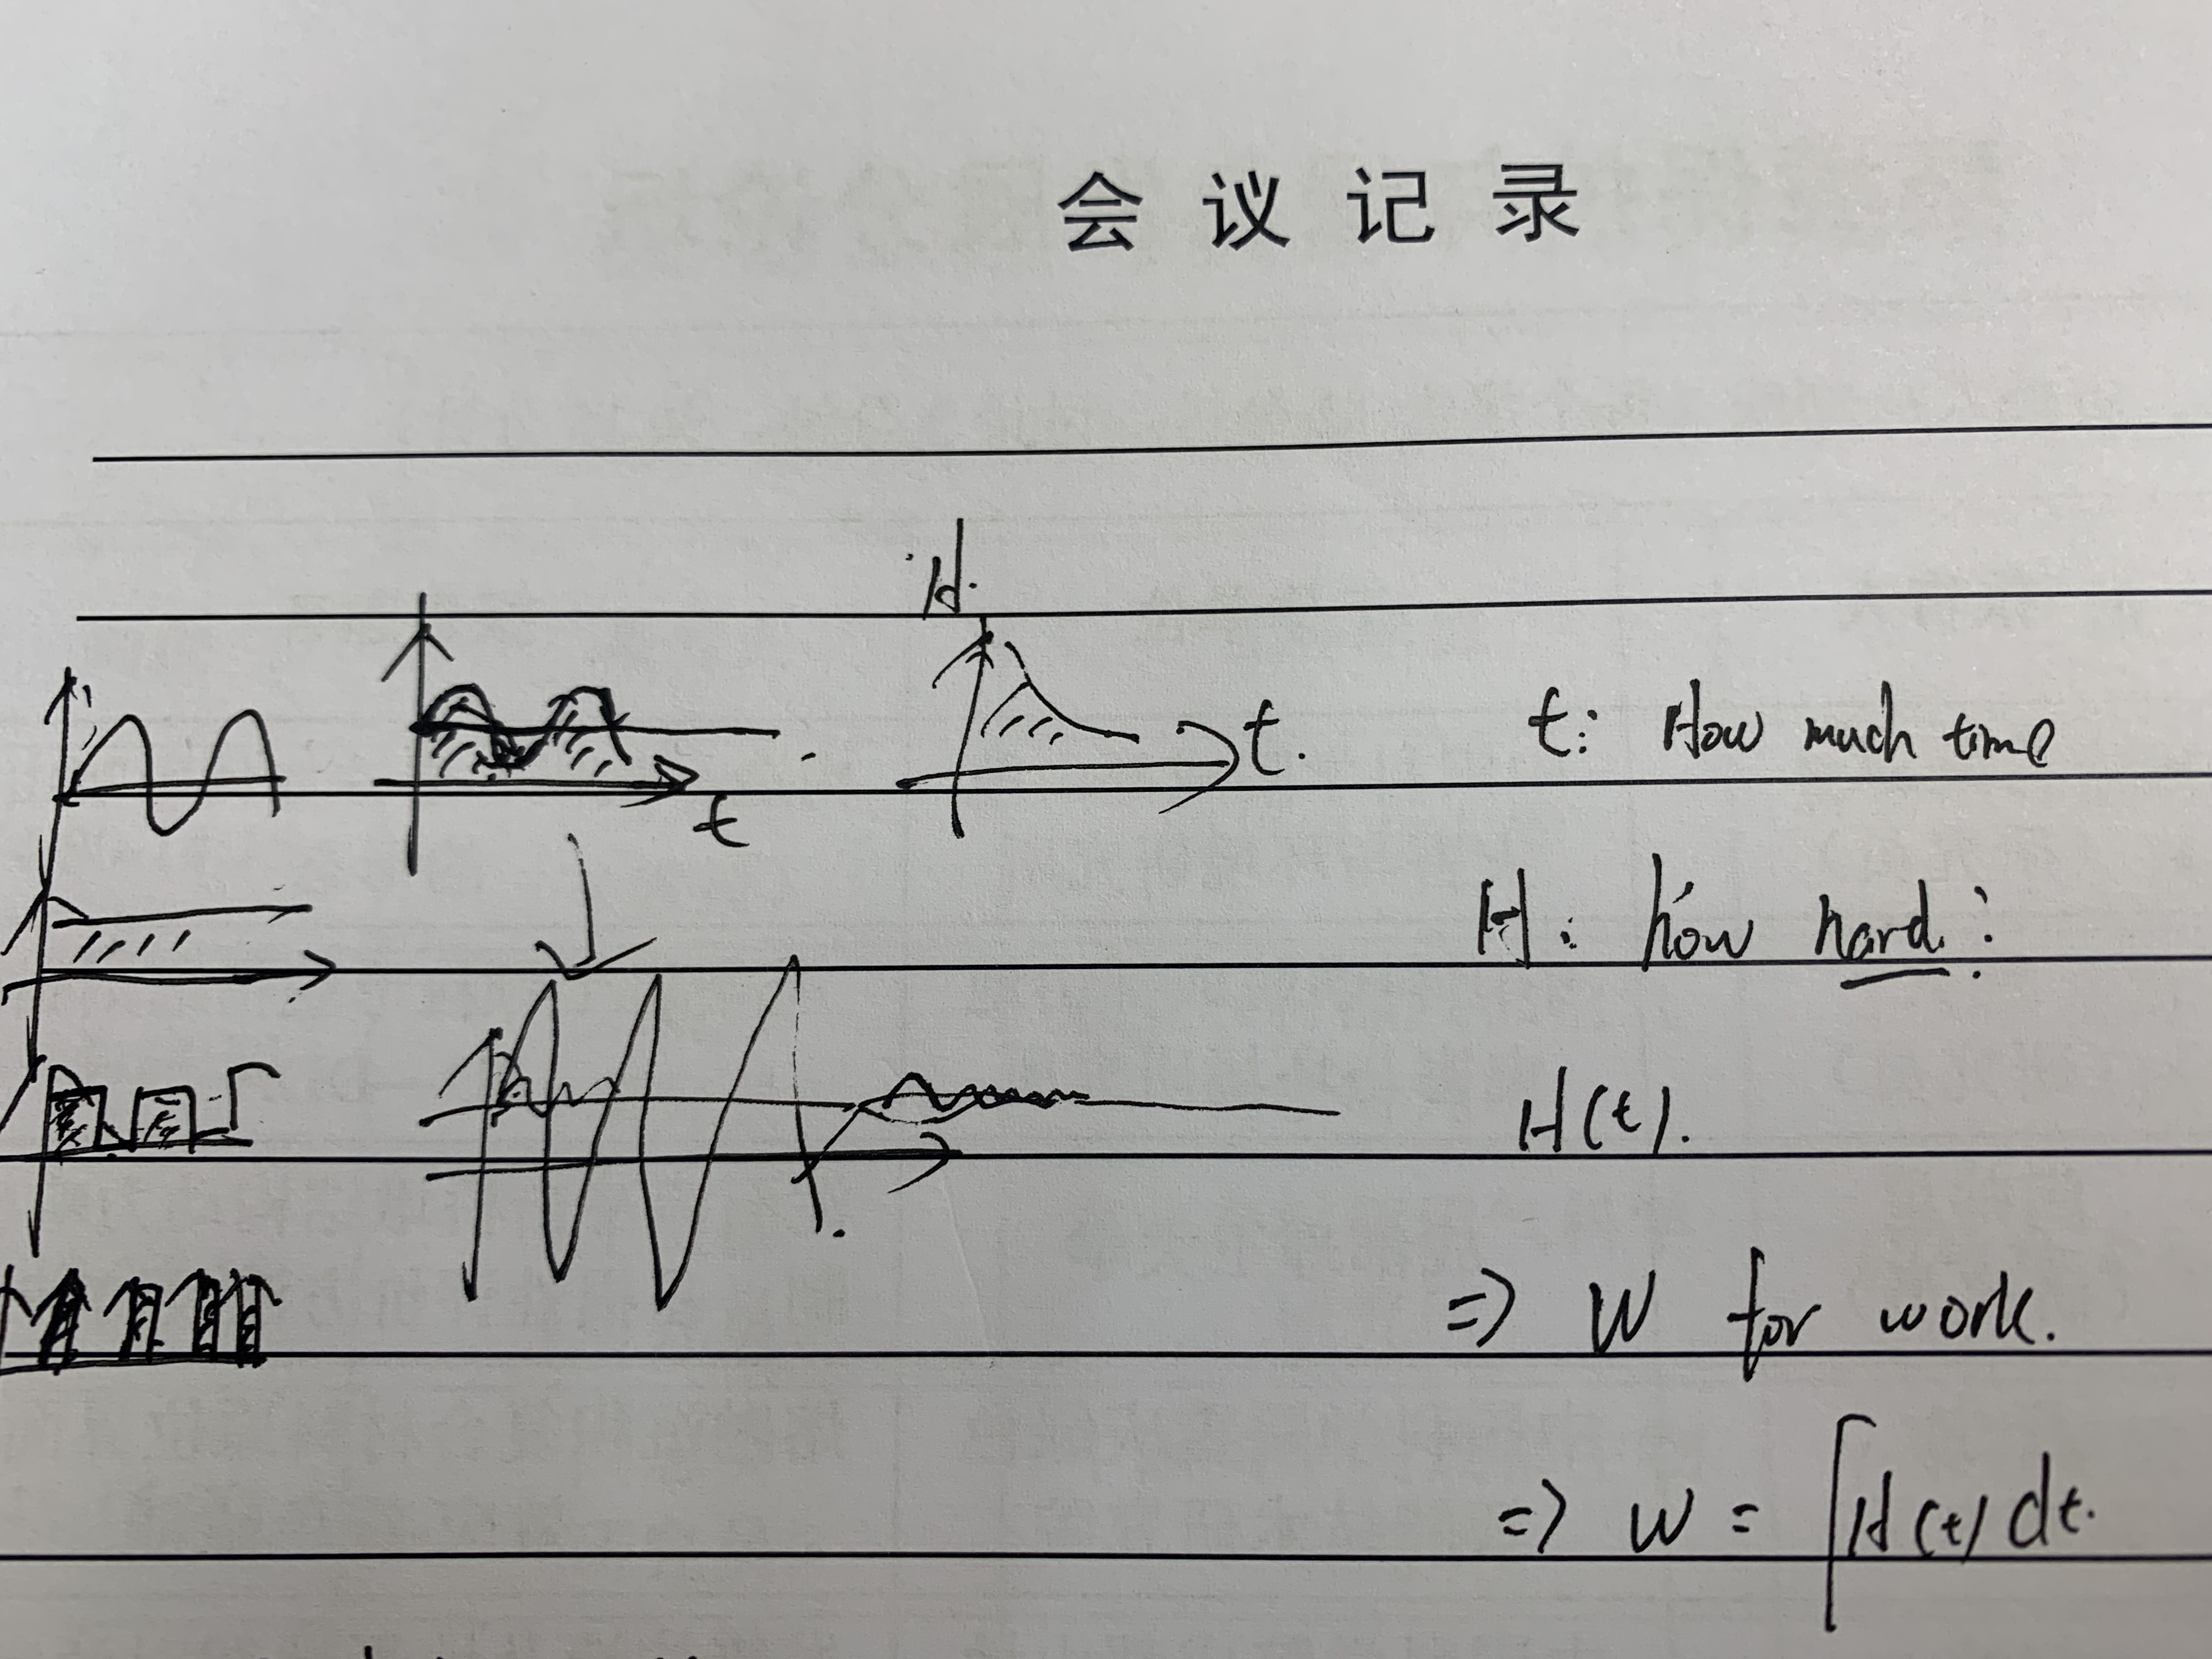 会议记录
H.
t.
t: How much time
t
H: how hard?
H(t).
=> W for work.
=> W = ∫H(t) dt.